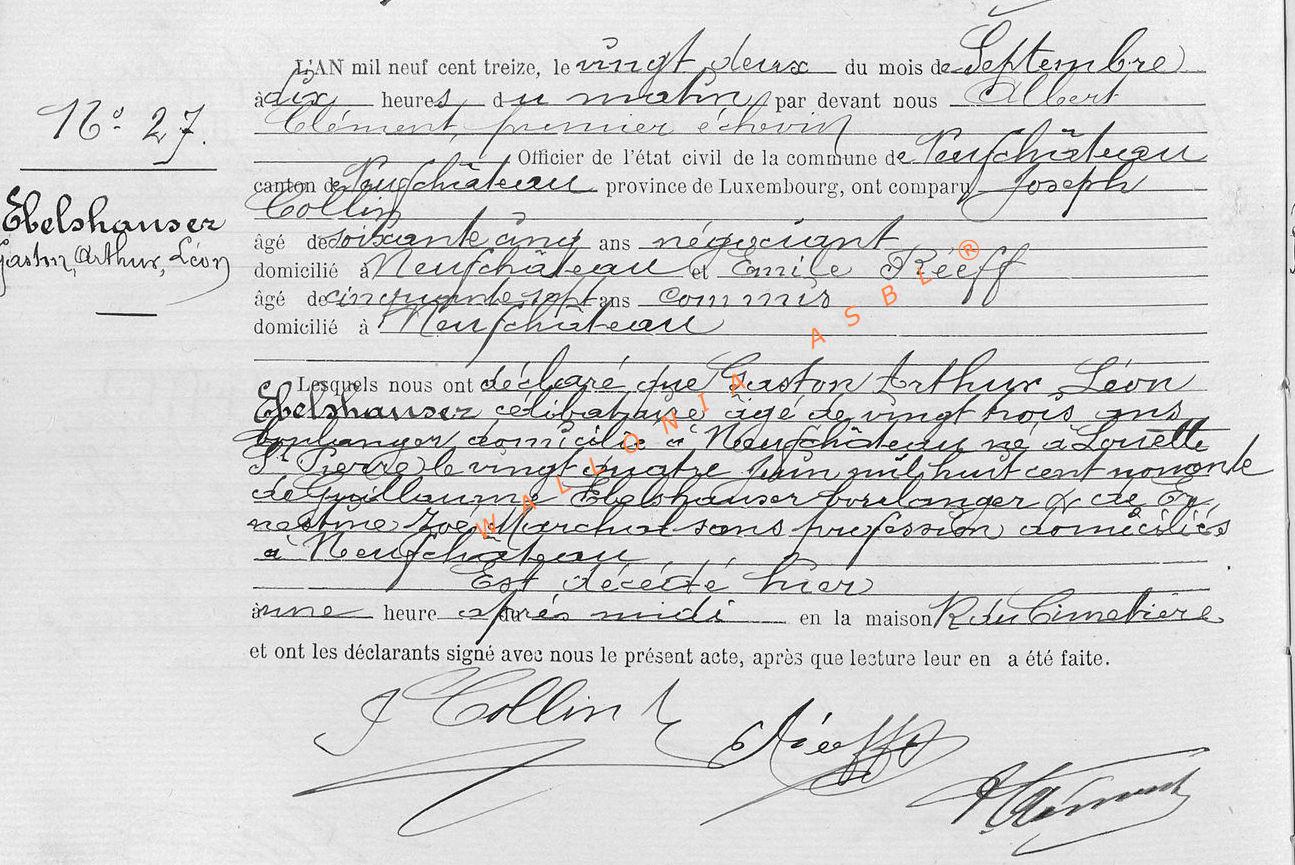 L'AN mil neuf cent treize, le vingt deux du mois de Septembre
à dix heures du matin, par devant nous Albert
Clément, premier échevin
Officier de l'état civil de la commune de Neufchâteau
canton de Neufchâteau province de Luxembourg, ont comparu Joseph
Collin
âgé de soixante cinq ans négociant
domicilié à Neufchâteau et Emile Réeff
âgé de cinquante sept ans commis
domicilié à Neufchâteau
Lesquels nous ont déclaré que Gaston Arthur Léon
Ebelshauser célibataire âgé de vingt trois ans
boulanger domicilié à Neufchâteau né à Louette
St Pierre le vingt quatre Juin mil huit cent nonante
de Guillaume Ebelshauser boulanger & de Er
nestine Zoé Marchal sans profession domiciliés
à Neufchâteau
Est décédé hier
à une heure après midi en la maison R. du Cimetière
et ont les déclarants signé avec nous le présent acte, après que lecture leur en a été faite.
J Collin
Réeff
A Clément
No. 27.
Ebelshauser
Gaston, Arthur, Léon
WALLONIA ASBL ®